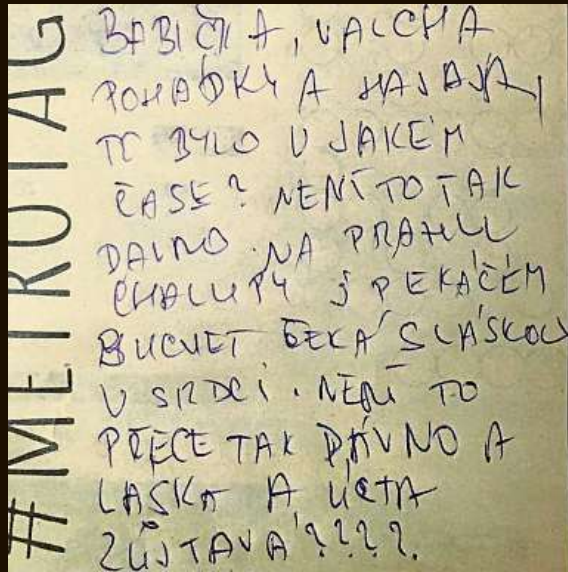 #METROTAG
BABIČKA, VALCHA
POHADKY A HAJAJA,
TO BYLO V JAKÉM
ČASE? NENÍ TO TAK
DAVNO. NA PRAHU
CHALUPY S PEKÁČEM
BUCHET ČEKÁ S LÁSKOU
V SRDCI. NENÍ TO
PŘECE TAK DÁVNO A
LASKA A ÚCTA
ZŮSTAVÁ????.